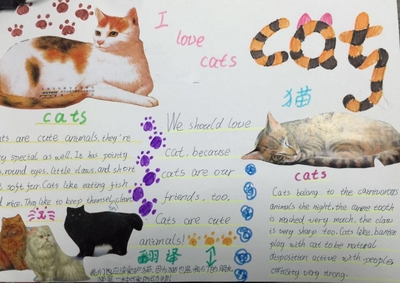 I
love
cats
cat
猫
cats
ats are cute animals. they're
ry special as well. It has pointy
s, round eyes, little claws, and short
soft fur. Cats like eating fish,
d mice. They like to keep themselves clean
We should love
cat, because
cats are our
friends, too,
Cats are cute
animals!
翻译
cats
Cats belong to the carnivorous
animals the night, the canine tooth
is reached very much, the claw
is very sharp too. Cats like, banter
play with cat to be natural
disposition active with peoples
curiosity very strong.